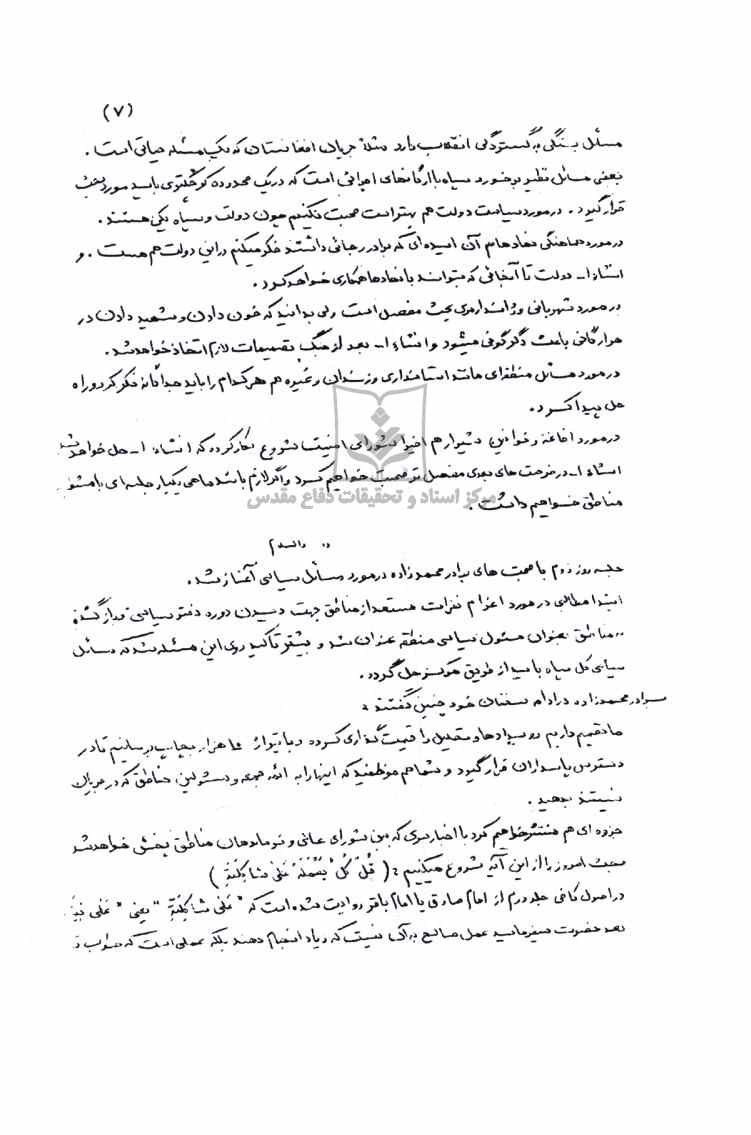 (۷)
مسئل بستگی به گستردگی انقلاب دارد مثلا جریان افغانستان که یک مسئله حیاتی است .
بعضی مسائل نظیر برخورد سپاه با ارگانهای اجرائی است که در یک محدوده کوچکتری باید مورد بحث
قرار گیرد . در مورد سیاست دولت هم بهتر است صحبت نکنیم چون دولت و سپاه یکی هستند .
در مورد هماهنگی نهادها هم آن امیدی که برادر رجائی داشتند فکر میکنم در این دولت هم هست . و
انشاء ا- دولت تا آنجائی که بتواند با نهادها همکاری خواهد کرد .
در مورد شهربانی و ژاندارمری بحث مفصل است ولی بدانید که خون دادن و شهید دادن در
هر ارگانی باعث دگرگونی میشود و انشاء ا- بعد از جنگ تصمیمات لازم اتخاذ خواهد شد .
در مورد مسائل منطقه‌ای مانند استانداری و زندان و غیره هم هر کدام را باید جداگانه فکر کرد و راه
حل پیدا کرد .
در مورد افاغنه و قوانین دشوار هم اخیرا شورای امنیت شروع بکار کرده که انشاء ا- حل خواهد شد
انشاء ا- در فرصت های بعدی مفصل تر صحبت خواهیم کرد و اگر لازم باشد ماهی یکبار جلسه‌ای با مسئو
مناطق خواهیم داشت .
مرکز اسناد و تحقیقات دفاع مقدس
والسلام
جلسه روز دوم با صحبت های برادر محمدزاده در مورد مسائل سیاسی آغاز شد .
ابتدا مطالبی در مورد اعزام نفرات مستعد از مناطق جهت دیدن دوره دفتر سیاسی و بازگشت
به مناطق بعنوان مسئول سیاسی منطقه عنوان شد و بیشتر تاکید روی این مسئله شد که مسائل
سیاسی کل سپاه باید از طریق مرکز حل گردد .
برادر محمدزاده در ادامه سخنان خود چنین گفتند :
ما تصمیم داریم رویدادها و تحلیل را قیمت گذاری کرده و با تیراژ ۱۵ هزار بچاپ برسانیم تا در
دسترس پاسداران قرار گیرد و شما هم موظفید که اینها را به ائمه جمعه و مسئولین مناطق که در جریان
نیستند بدهید .
جزوه ای هم منتشر خواهیم کرد با اخباری که بین شورای عالی و فرماندهان مناطق پخش خواهد شد
صحبت امروز را از این آیه شروع میکنیم : ( قُلْ کُلٌّ یَعْمَلُ عَلی شاکِلَتِهِ )
در اصول کافی جلد دوم از امام صادق یا امام باقر روایت شده است که " عَلی شاکِلَتِهِ " یعنی " علی نیته
بعد حضرت میفرماید عمل صالح به آن نیست که زیاد انجام دهند بلکه عملی است که صواب